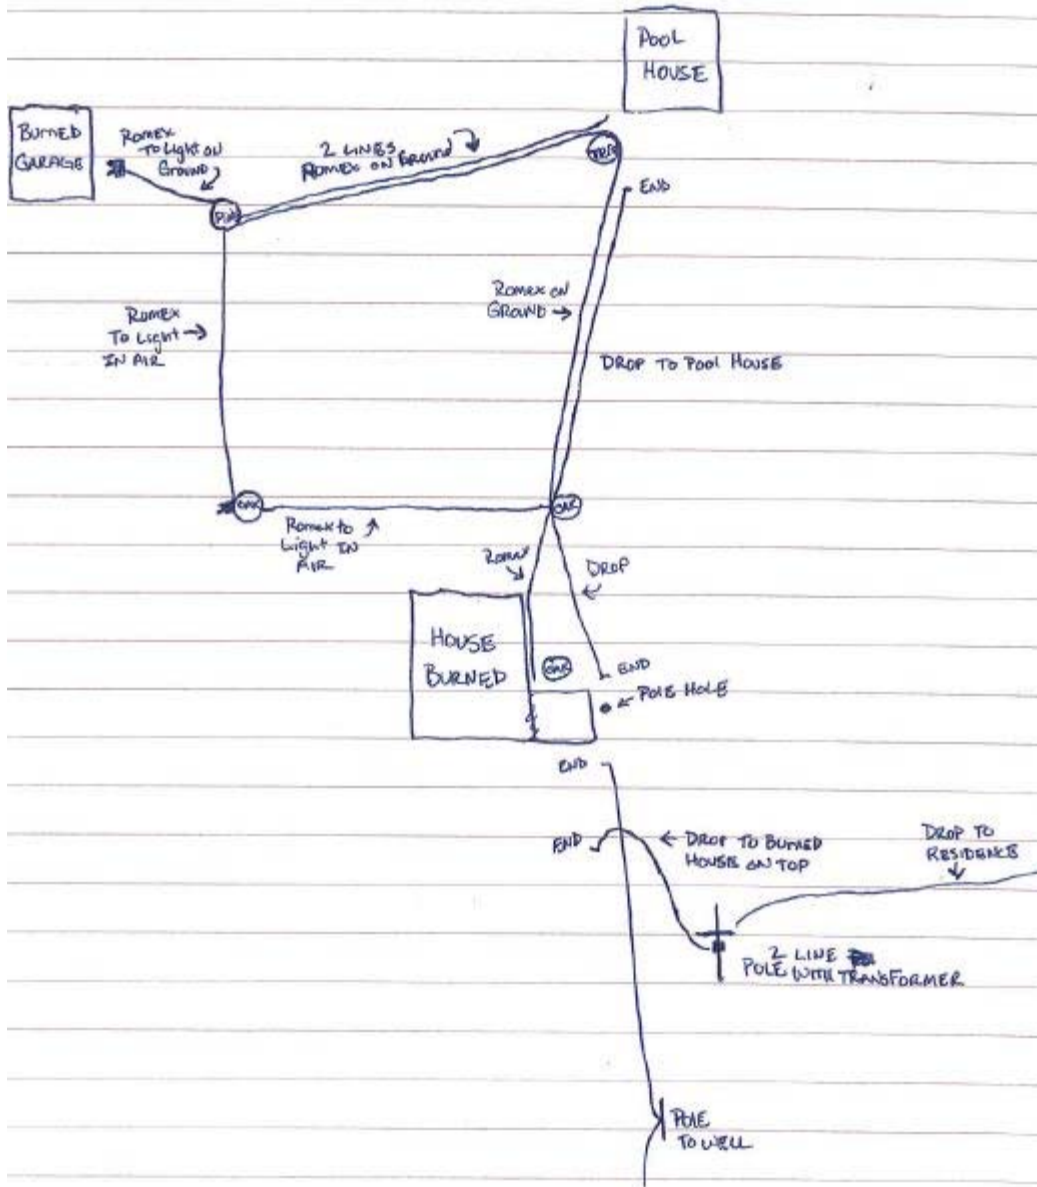 POOL
HOUSE
BURNED
GARAGE
ROMEX
TO Light ON
GROUND
2 LINES
ROMEX ON GROUND
END
ROMEX ON
GROUND
ROMEX
TO Light
IN AIR
DROP TO POOL HOUSE
OAK
OAK
ROMEX to
Light IN
AIR
ROMEX
DROP
HOUSE
BURNED
OAK
END
POLE HOLE
END
END
DROP TO BURNED
HOUSE ON TOP
DROP TO
RESIDENCE
2 LINE
POLE WITH TRANSFORMER
POLE
TO WELL